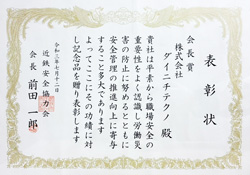 表彰状
会長賞
株式会社
ダイニチテクノ 殿
貴社は平素から職場安全の
重要性をよく認識し労働災
害の防止に努めるとともに
安全管理の推進向上に寄与
すること多大であります
よってここにその功績に対
し記念品を贈り表彰します
七月十二日
近鉄安全協力会
会長 前田一郎